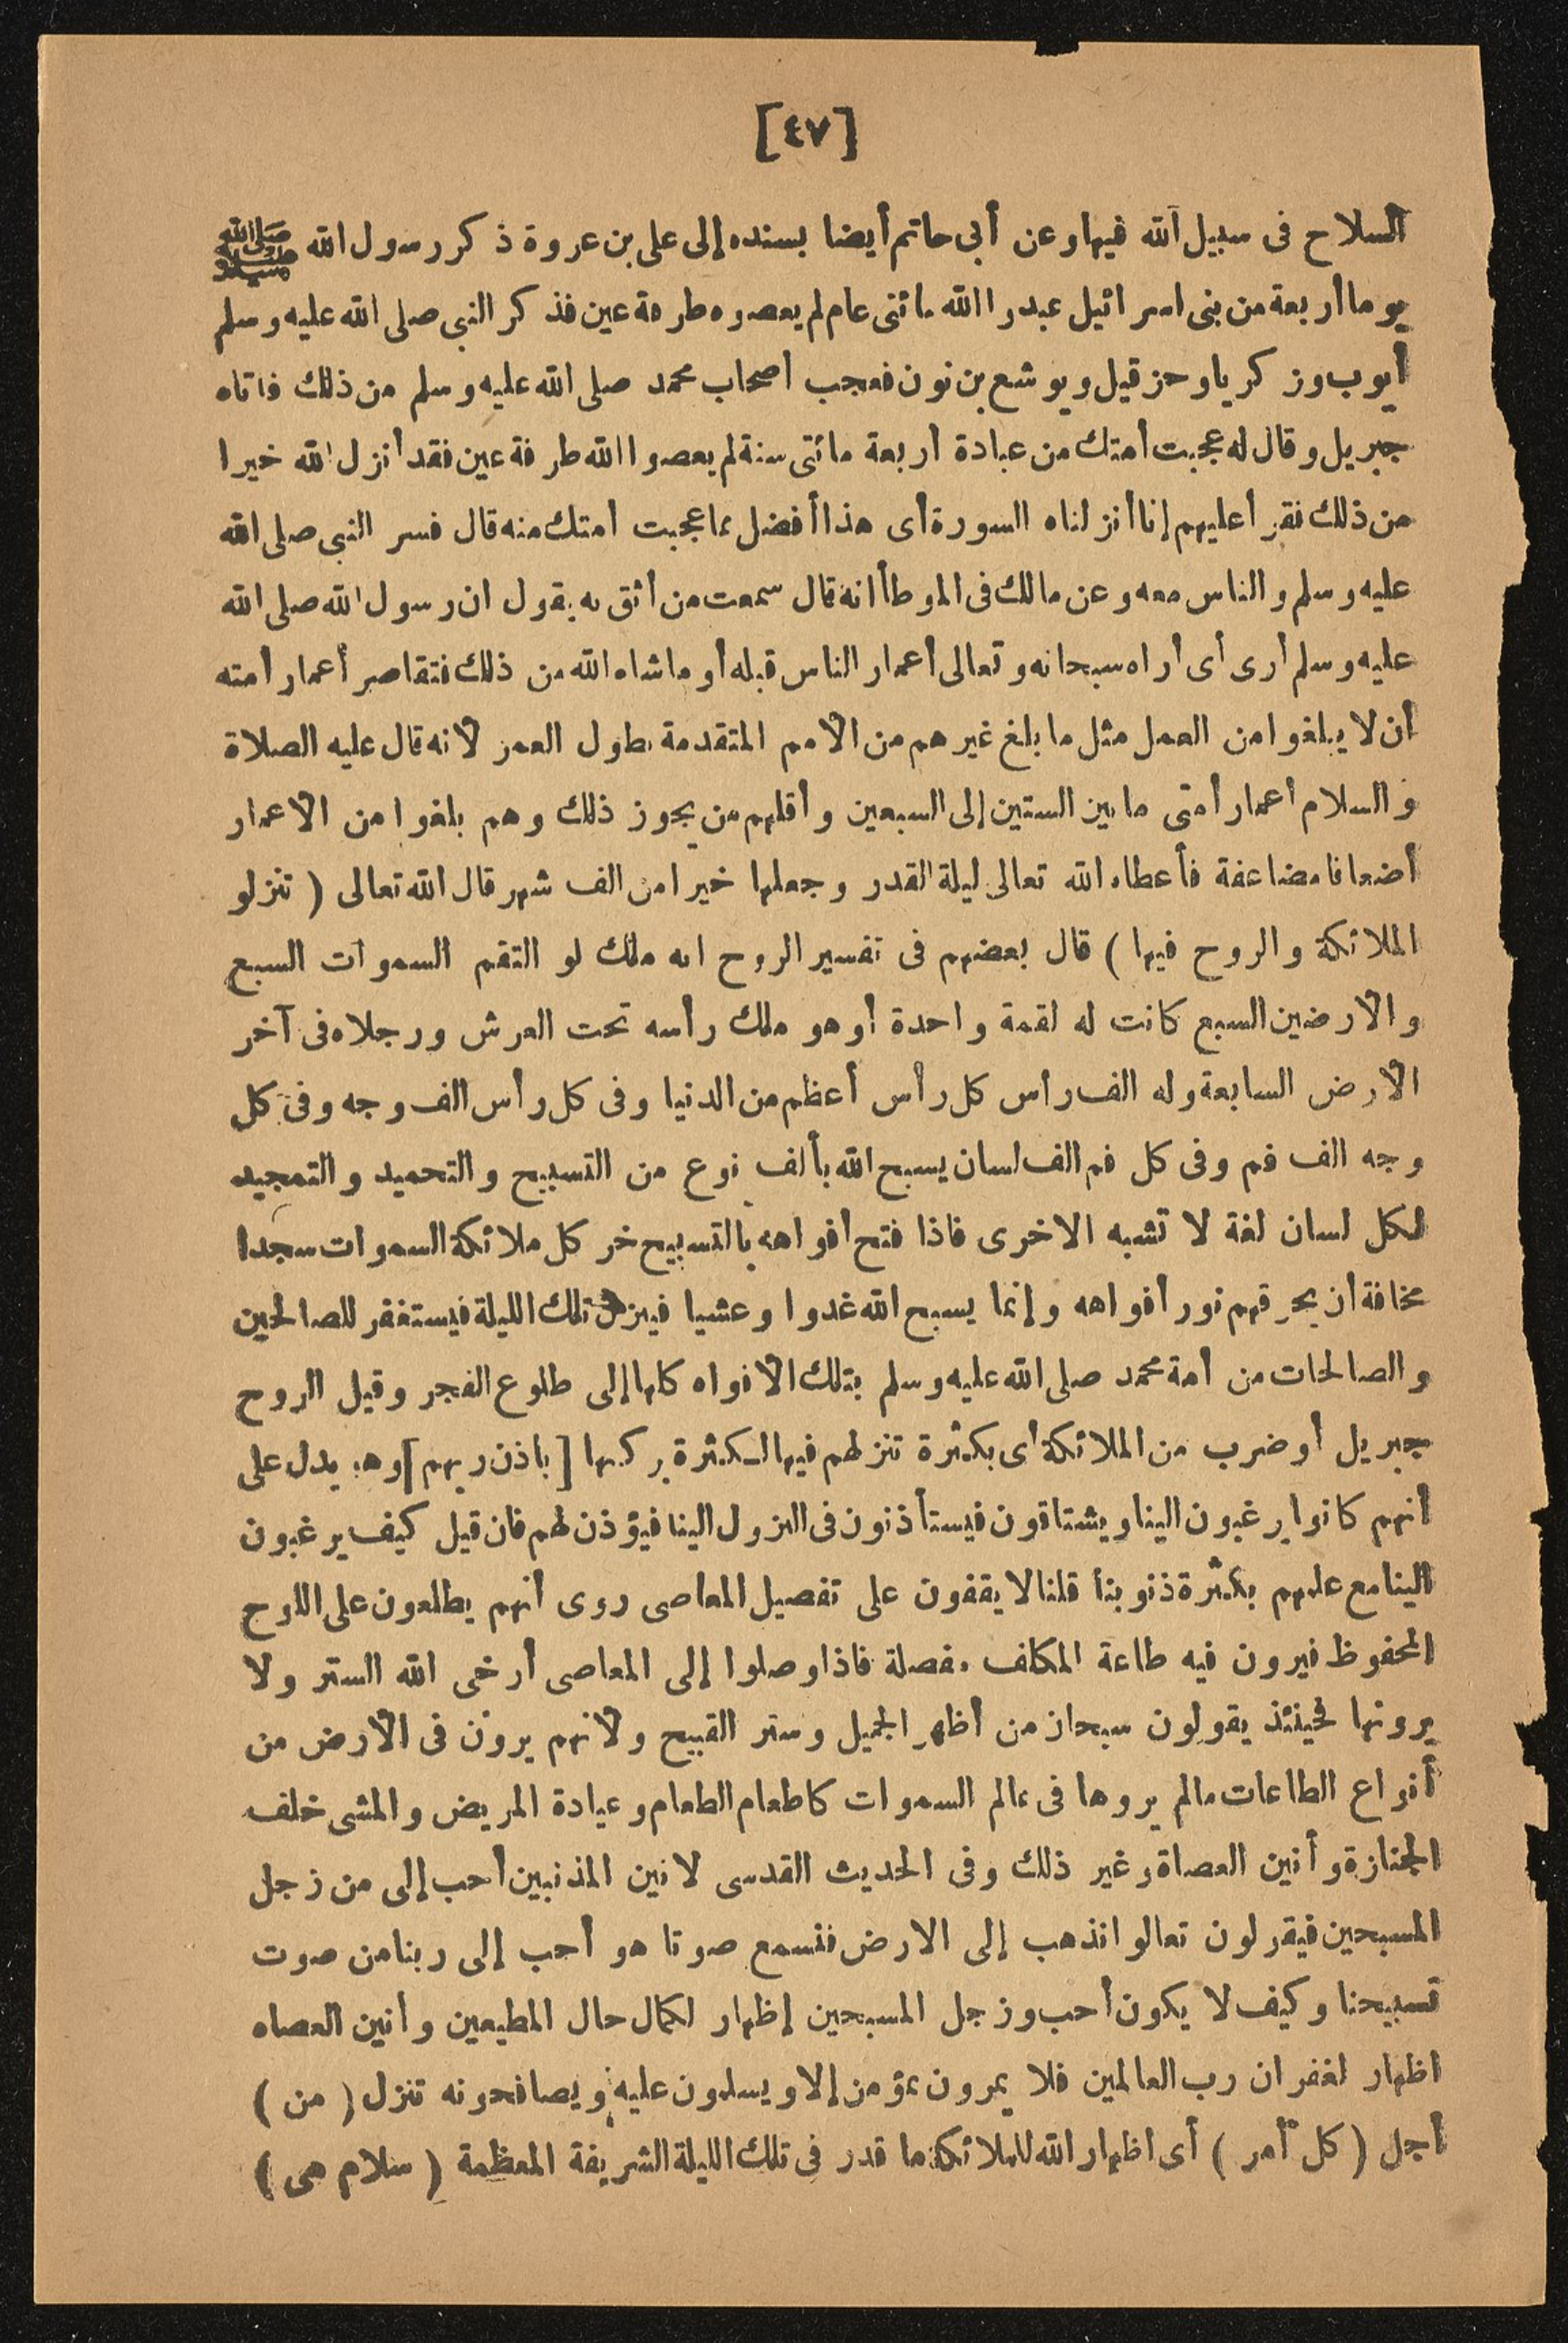 [٤٧]
السلاح فى سبيل الله فيها وعن أبى حاتم أيضا بسنده إلى على بن عروة ذكر رسول الله ﷺ
يوما أربعة من بنى اسرائيل عبدوا الله مائتى عام لم يعصوه طرفة عين فذكر النبى صلى الله عليه وسلم
أيوب وزكريا وحزقيل ويوشع بن نون فعجب أصحاب محمد صلى الله عليه وسلم من ذلك فاتاه
جبريل وقال له عجبت أمتك من عبادة أربعة مائتى سنة لم يعصوا الله طرفة عين فقد أنزل الله خيرا
من ذلك فقرأ عليهم إنا أنزلناه السورة أى هذا أفضل مما عجبت أمتك منه قال فسر النبى صلى الله
عليه وسلم والناس معه وعن مالك فى الموطأ انه قال سمعت من أثق به يقول ان رسول الله صلى الله
عليه وسلم أرى أى أراه سبحانه وتعالى أعمار الناس قبله أو ماشاء الله من ذلك فتقاصر أعمار أمته
أن لا يبلغوا من العمل مثل ما بلغ غيرهم من الأمم المتقدمة بطول العمر لأنه قال عليه الصلاة
والسلام أعمار أمتى ما بين الستين إلى السبعين وأقلهم من يجوز ذلك وهم بلغوا من الاعمار
أضعافا مضاعفة فأعطاه الله تعالى ليلة القدر وجعلها خيرا من الف شهر قال الله تعالى ( تنزلو
الملائكة والروح فيها ) قال بعضهم فى تفسير الروح انه ملك لو التقم السموات السبع
والأرضين السبع كانت له لقمة واحدة أو هو ملك رأسه تحت العرش ورجلاه فى آخر
الأرض السابعة وله الف رأس كل رأس أعظم من الدنيا وفى كل رأس الف وجه وفى كل
وجه الف فم وفى كل فم الف لسان يسبح الله بألف نوع من التسبيح والتحميد والتمجيد
لكل لسان لغة لا تشبه الاخرى فاذا فتح أفواهه بالتسبيح خر كل ملائكة السموات سجدا
مخافة أن يحرقهم نور أفواهه وإنما يسبح الله غدوا وعشيا فينزل تلك الليلة فيستغفر للصالحين
والصالحات من أمة محمد صلى الله عليه وسلم بتلك الأفواه كلها إلى طلوع الفجر وقيل الروح
جبريل أو ضرب من الملائكة أى بكثرة تنزلهم فيها لكثرة بركتها [باذن ربهم] وهو يدل على
أنهم كانوا يرغبون الينا ويشتاقون فيستأذنون فى النزول الينا فيؤذن لهم فان قيل كيف يرغبون
الينا مع علمهم بكثرة ذنوبنا قلنا لا يقفون على تفصيل المعاصى روى أنهم يطلعون على اللوح
المحفوظ فيرون فيه طاعة المكلف مفصلة فاذا وصلوا إلى المعاصى أرخى الله الستر ولا
يرونها فحينئذ يقولون سبحان من أظهر الجميل وستر القبيح ولأنهم يرون فى الأرض من
أنواع الطاعات مالم يروها فى عالم السموات كاطعام الطعام وعيادة المريض والمشى خلف
الجنازة وأنين العصاة وغير ذلك وفى الحديث القدسى لانين المذنبين أحب إلى من زجل
المسبحين فيقولون تعالوا نذهب إلى الارض فنسمع صوتا هو أحب إلى ربنا من صوت
تسبيحنا وكيف لا يكون أحب وزجل المسبحين إظهار لكمال حال المطيعين وأنين العصاه
اظهار لغفران رب العالمين فلا يمرون بمؤمن إلا ويسلمون عليه ويصافحونه تنزل ( من )
أجل ( كل أمر ) أى اظهار الله للملائكة ما قدر فى تلك الليلة الشريفة المعظمة ( سلام هى )